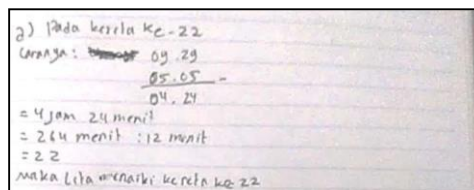 a) Pada kereta ke-22
Caranya: 09.29
05.05 -
04.24
= 4 jam 24 menit
= 264 menit : 12 menit
= 22
Maka Lita menaiki kereta ke 22